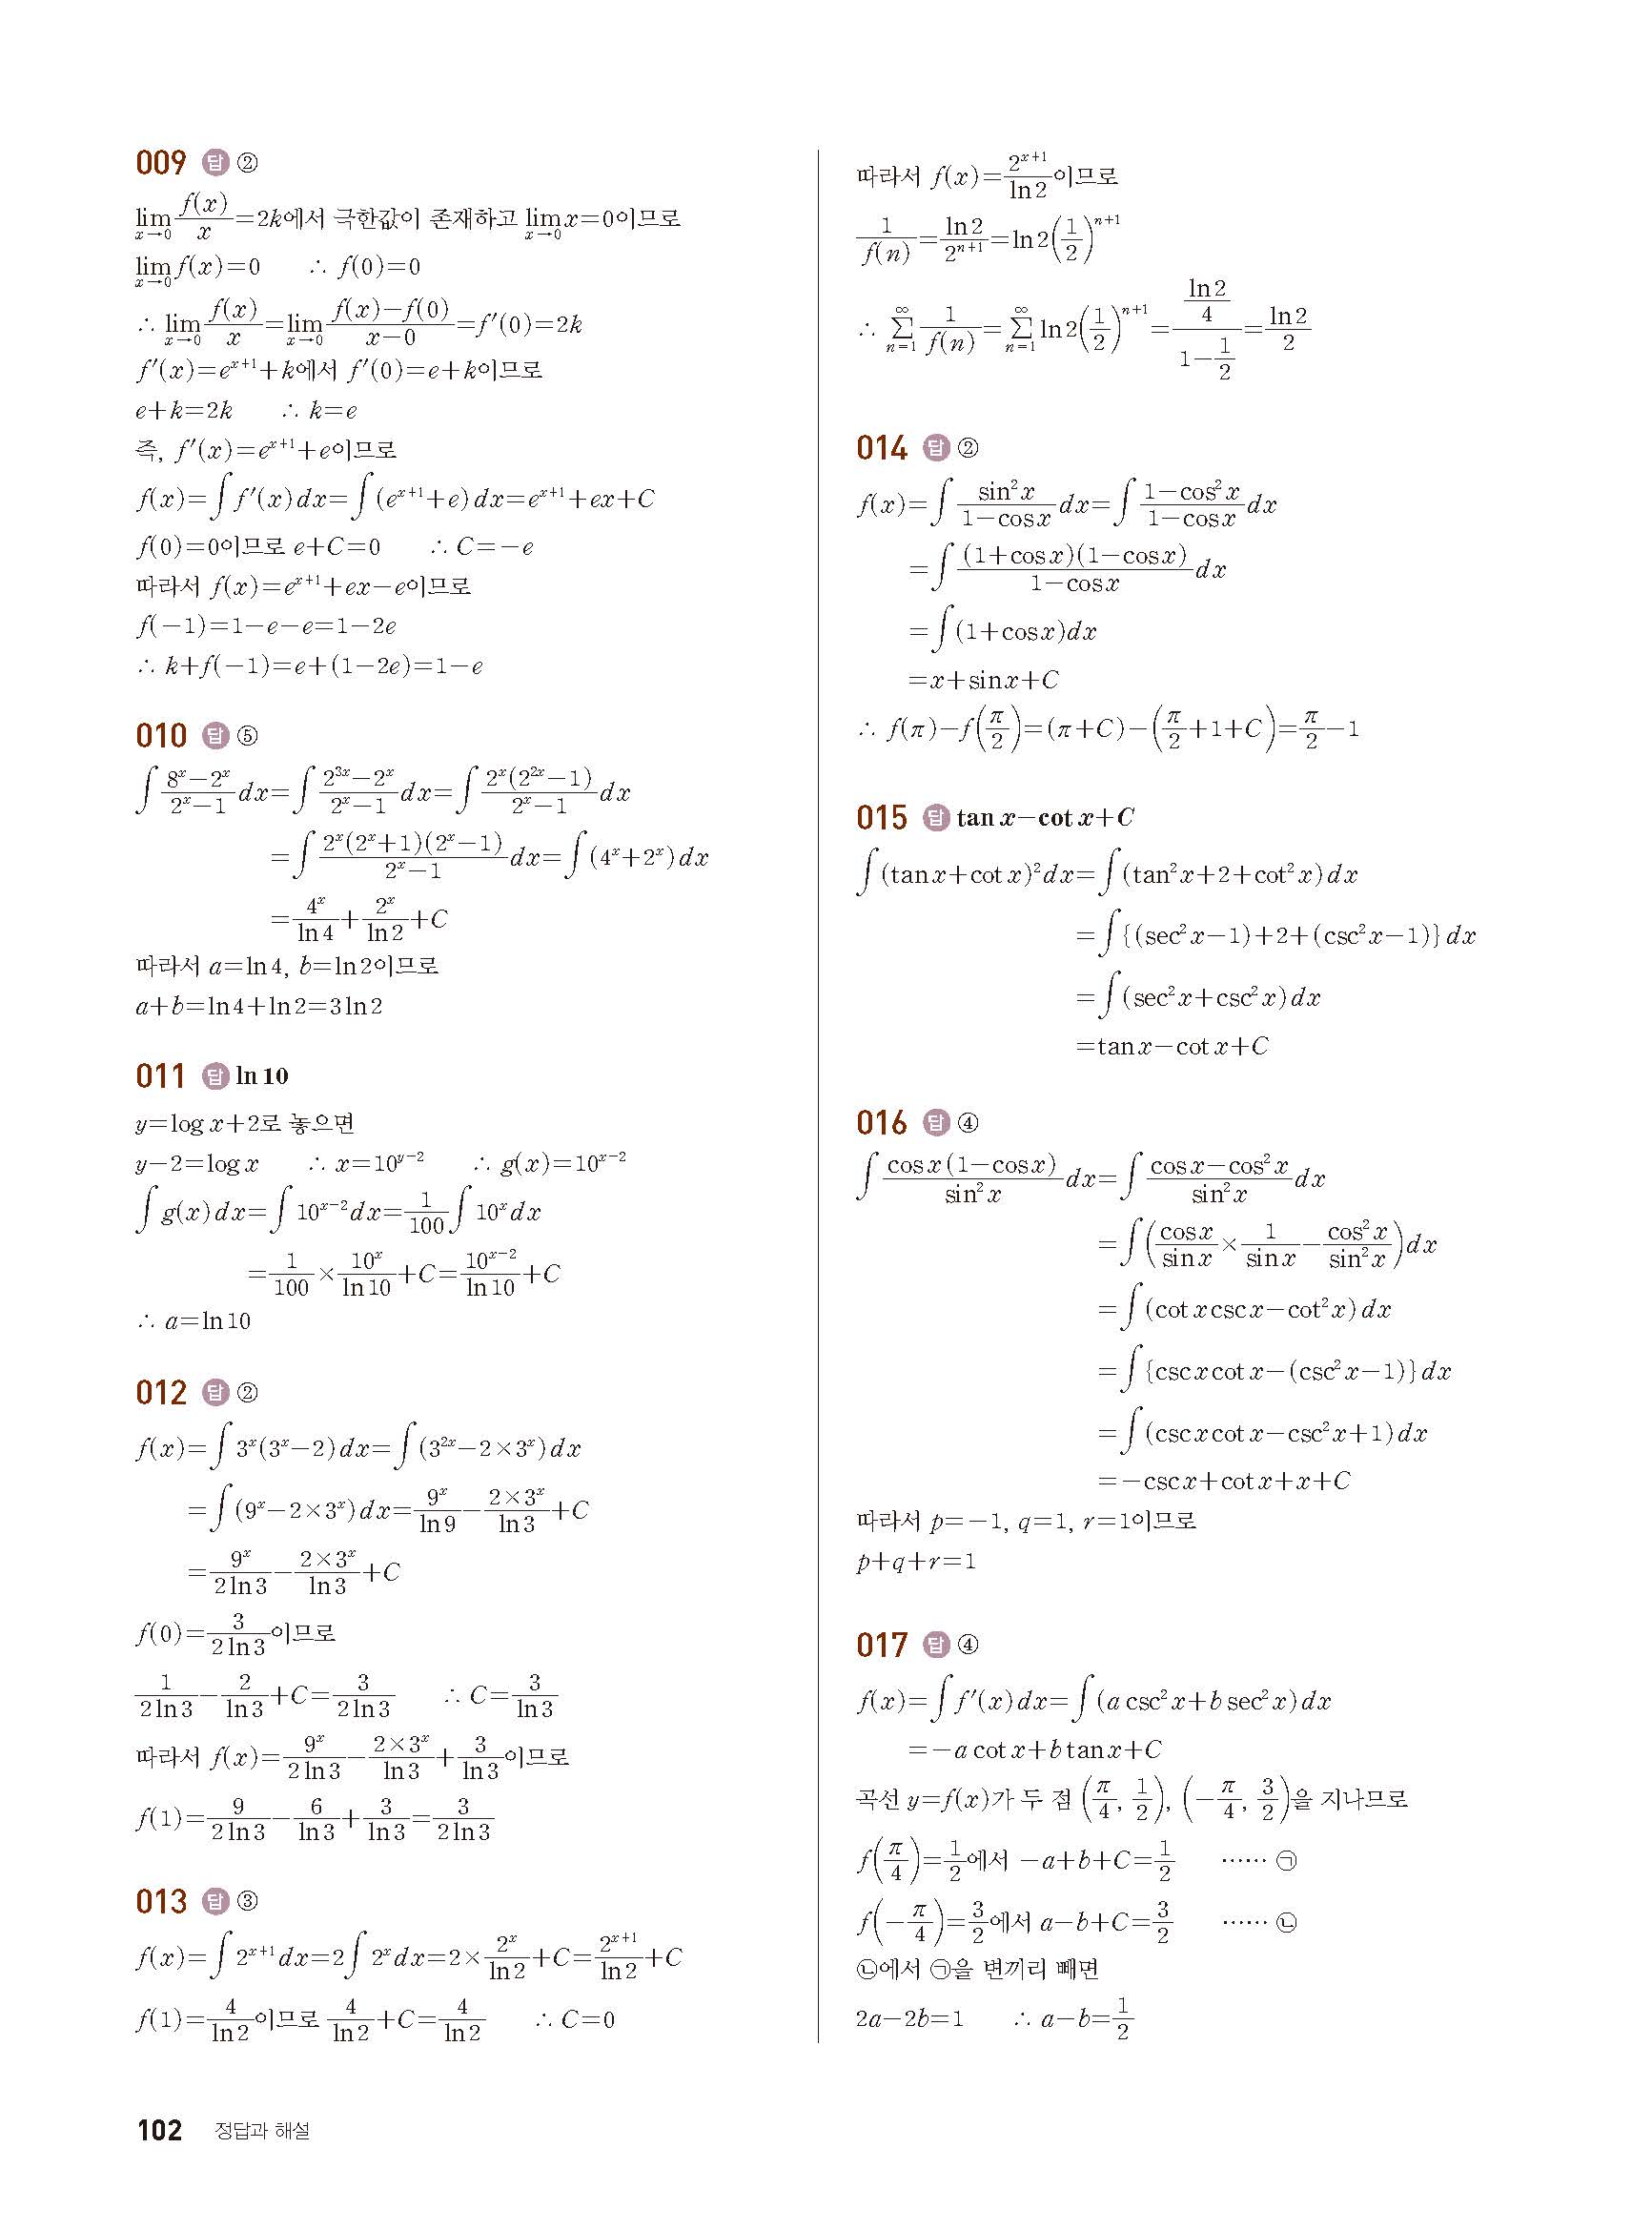 009 답 ②
lim_{x→0} f(x)/x=2k에서 극한값이 존재하고 lim_{x→0} x=0이므로
lim_{x→0} f(x)=0 ∴ f(0)=0
∴ lim_{x→0} f(x)/x=lim_{x→0} (f(x)-f(0))/(x-0)=f′(0)=2k
f′(x)=e^{x+1}+k에서 f′(0)=e+k이므로
e+k=2k ∴ k=e
즉, f′(x)=e^{x+1}+e이므로
f(x)=∫f′(x)dx=∫(e^{x+1}+e)dx=e^{x+1}+ex+C
f(0)=0이므로 e+C=0 ∴ C=-e
따라서 f(x)=e^{x+1}+ex-e이므로
f(-1)=1-e-e=1-2e
∴ k+f(-1)=e+(1-2e)=1-e
010 답 ⑤
∫(8^x-2^x)/(2^x-1) dx=∫(2^{3x}-2^x)/(2^x-1) dx=∫2^x(2^{2x}-1)/(2^x-1) dx
=∫2^x(2^x+1)(2^x-1)/(2^x-1) dx=∫(4^x+2^x)dx
=4^x/ln4+2^x/ln2+C
따라서 a=ln4, b=ln2이므로
a+b=ln4+ln2=3ln2
011 답 ln 10
y=log x+2로 놓으면
y-2=log x ∴ x=10^{y-2} ∴ g(x)=10^{x-2}
∫g(x)dx=∫10^{x-2}dx=1/100∫10^x dx
=1/100×10^x/ln10+C=10^{x-2}/ln10+C
∴ a=ln10
012 답 ②
f(x)=∫3^x(3^x-2)dx=∫(3^{2x}-2×3^x)dx
=∫(9^x-2×3^x)dx=9^x/ln9-(2×3^x)/ln3+C
=9^x/(2ln3)-(2×3^x)/ln3+C
f(0)=3/(2ln3)이므로
1/(2ln3)-2/ln3+C=3/(2ln3) ∴ C=3/ln3
따라서 f(x)=9^x/(2ln3)-(2×3^x)/ln3+3/ln3이므로
f(1)=9/(2ln3)-6/ln3+3/ln3=3/(2ln3)
013 답 ③
f(x)=∫2^{x+1}dx=2∫2^x dx=2×2^x/ln2+C=2^{x+1}/ln2+C
f(1)=4/ln2이므로 4/ln2+C=4/ln2 ∴ C=0
따라서 f(x)=2^{x+1}/ln2이므로
1/f(n)=ln2/2^{n+1}=ln2(1/2)^{n+1}
∴ Σ_{n=1}^{∞} 1/f(n)=Σ_{n=1}^{∞} ln2(1/2)^{n+1}=(ln2/4)/(1-1/2)=ln2/2
014 답 ②
f(x)=∫sin²x/(1-cosx) dx=∫(1-cos²x)/(1-cosx) dx
=∫(1+cosx)(1-cosx)/(1-cosx) dx
=∫(1+cosx)dx
=x+sinx+C
∴ f(π)-f(π/2)=(π+C)-(π/2+1+C)=π/2-1
015 답 tan x-cot x+C
∫(tanx+cotx)²dx=∫(tan²x+2+cot²x)dx
=∫{(sec²x-1)+2+(csc²x-1)}dx
=∫(sec²x+csc²x)dx
=tanx-cotx+C
016 답 ④
∫cosx(1-cosx)/sin²x dx=∫(cosx-cos²x)/sin²x dx
=∫(cosx/sinx×1/sinx-cos²x/sin²x)dx
=∫(cotxcscx-cot²x)dx
=∫{cscxcotx-(csc²x-1)}dx
=∫(cscxcotx-csc²x+1)dx
=-cscx+cotx+x+C
따라서 p=-1, q=1, r=1이므로
p+q+r=1
017 답 ④
f(x)=∫f′(x)dx=∫(a csc²x+b sec²x)dx
=-a cotx+b tanx+C
곡선 y=f(x)가 두 점 (π/4, 1/2), (-π/4, 3/2)을 지나므로
f(π/4)=1/2에서 -a+b+C=1/2 …… ㉠
f(-π/4)=3/2에서 a-b+C=3/2 …… ㉡
㉡에서 ㉠을 변끼리 빼면
2a-2b=1 ∴ a-b=1/2
102 정답과 해설